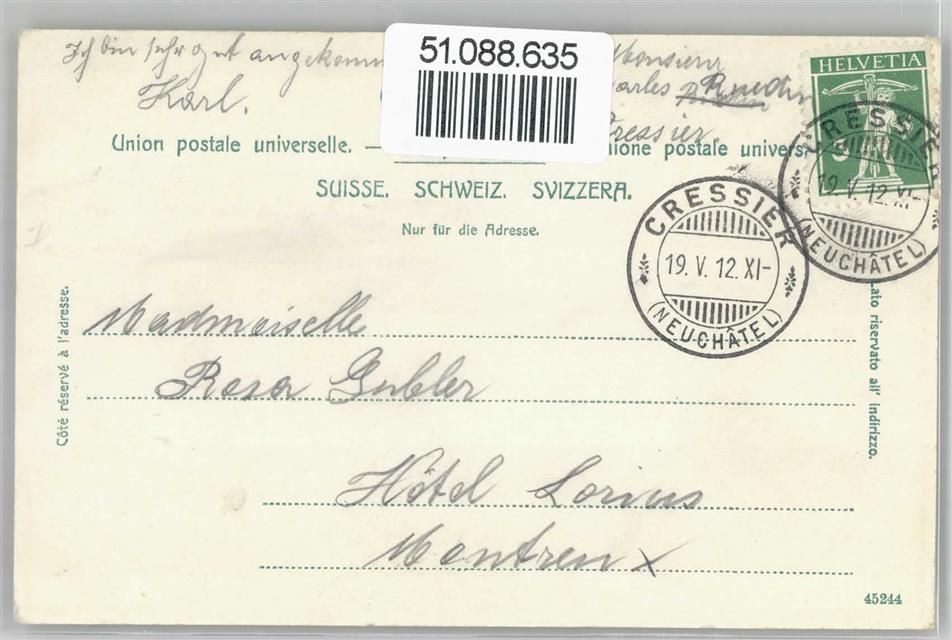 Ich bin sehr gut angekomm
Karl.
51.088.635
Monsieur
arles
Cressier.
HELVETIA
5
Union postale universelle. —
ione postale univers
SUISSE. SCHWEIZ. SVIZZERA.
Nur für die Adresse.
CRESSIER
19. V. 12. XI-
(NEUCHÂTEL)
CRESSIER
19. V. 12. XI-
(NEUCHÂTEL)
Côté réservé à l'adresse.
Lato riservato all' indirizzo.
Madmoiselle
Rosa Gubler
Hôtel Lorius
Montreux
45244